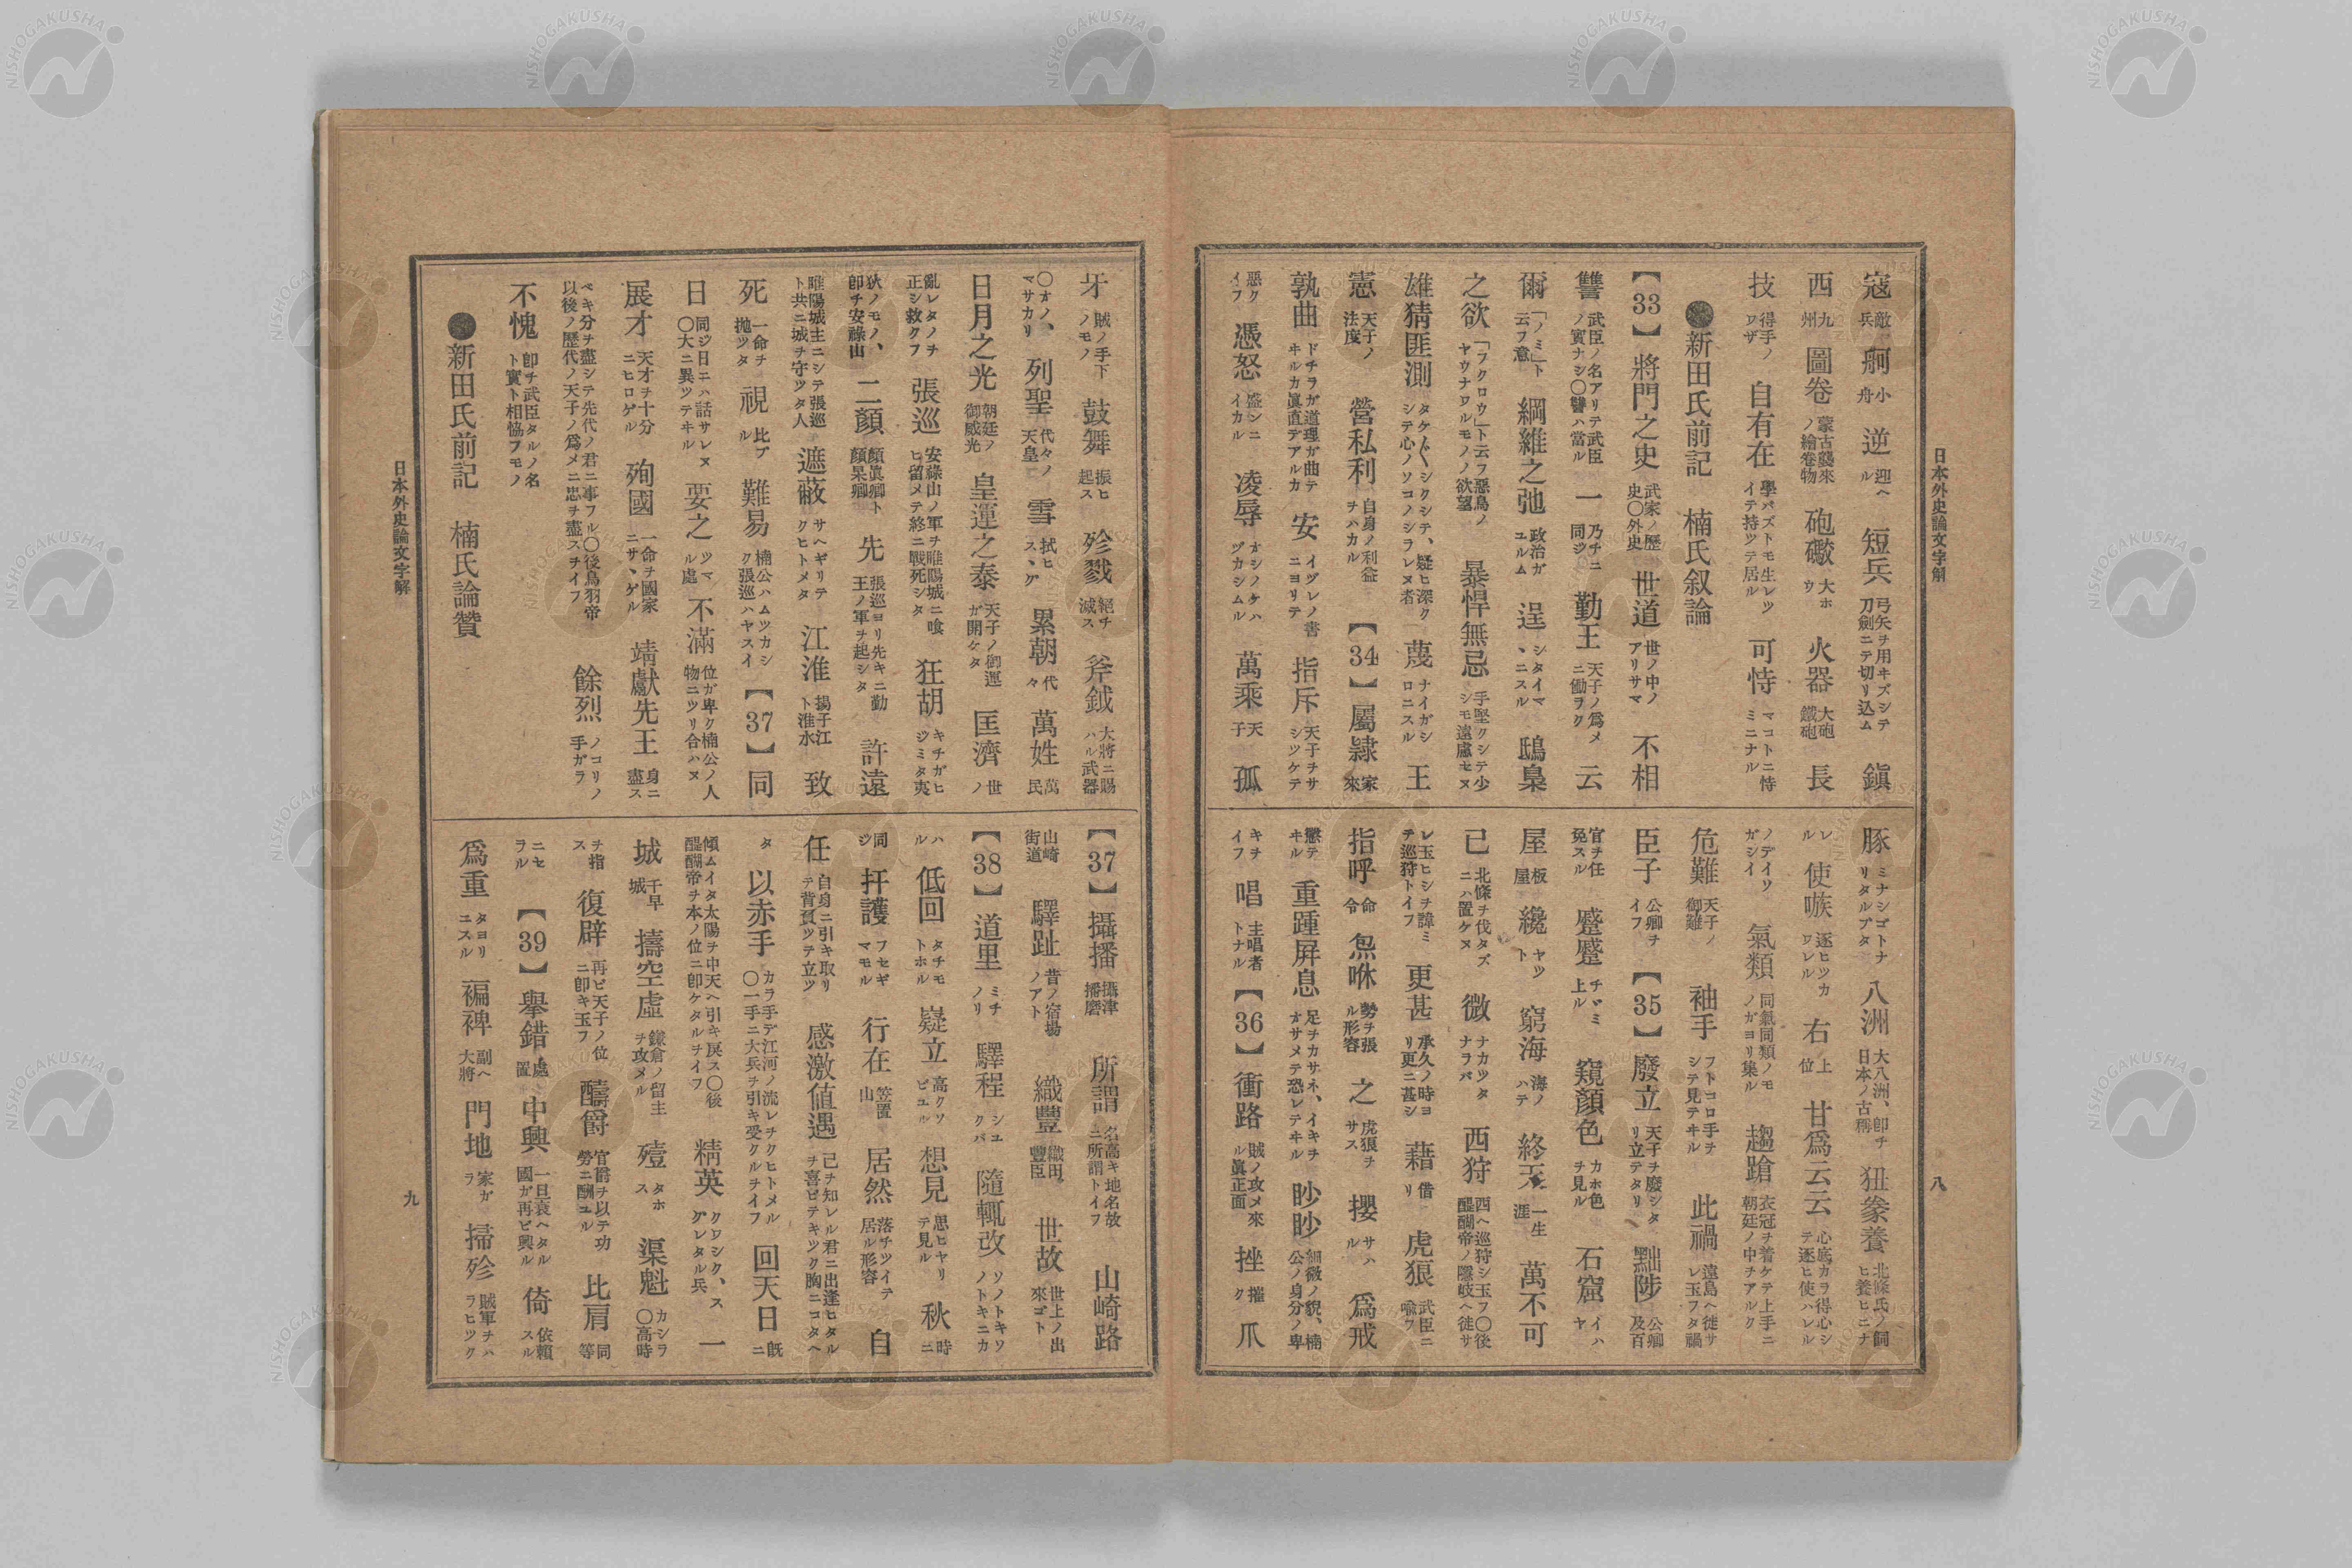 日本外史論文字解
八
寇 敵兵 舸 小舟 逆 迎ヘル 短兵 弓矢ヲ用ヰズシテ刀劍ニテ切リ込ム 鎭
西 九州 圖卷 蒙古襲來ノ繪卷物 砲礮 大ホウ 火器 大砲鐵砲 長
技 得手ノワザ 自有在 學バズトモ生レツイテ持ツテ居ル 可恃 マコトニ恃ミニナル
●新田氏前記 楠氏叙論
【33】將門之史 武家ノ歷史〇外史 世道 世ノ中ノアリサマ 不相
讐 武臣ノ名アリテ武臣ノ實ナシ〇讐ハ當ル 一 乃チニ同ジ 勤王 天子ノ爲メニ働ヲク 云
爾 「ノミ」ト云フ意 綱維之弛 政治ガユルム 逞 シタイマヽニスル 鴟梟
之欲 「フクロウ」ト云フ惡鳥ノヤウナワルモノノ欲望 暴悍無忌 手堅クシテ少シモ遠慮セヌ
雄猜匪測 タケ〱シクシテ、疑ヒ深クシテ心ノソコノシラレヌ者 蔑 ナイガシロニスル 王
憲 天子ノ法度 營私利 自身ノ利益ヲハカル 【34】屬隷 家來
孰曲 ドチラガ道理ガ曲テヰルカ眞直デアルカ 安 イヅレノ書ニヨリテ 指斥 天子ヲサシツケテ
惡クイフ 憑怒 盛ンニイカル 凌辱 オシノケハヅカシムル 萬乘 天子 孤
豚 ミナシゴトナリタルブタ 八洲 大八洲、卽チ日本ノ古稱 狃豢養 北條氏ノ飼ヒ養ヒニナ
レル 使嗾 逐ヒツカワレル 右 上位 甘爲云云 心底カラ得心シテ逐ヒ使ハレル
ノデイソガシイ 氣類 同氣同類ノモノガヨリ集ル 趨蹌 衣冠ヲ着ケテ上手ニ朝廷ノ中ヲアルク
危難 天子ノ御難 袖手 フトコロ手ヲシテ見テヰル 此禍 遠島ヘ徙サレ玉フタ禍
臣子 公卿ヲイフ 【35】廢立 天子ヲ廢シタリ立テタリ 黜陟 公卿及百
官ヲ任免スル 蹙蹙 チヾミ上ル 窺顏色 カホ色ヲ見ル 石窟 イハヤ
屋 板屋 纔 ヤツト 窮海 海ノハテ 終天 一生涯 萬不可
已 北條ヲ伐タズニハ置ケヌ 微 ナカツタナラバ 西狩 西ヘ巡狩シ玉フ〇後醍醐帝ノ隱岐ヘ徙サ
レ玉ヒシヲ諱ミテ巡狩トイフ 更甚 承久ノ時ヨリ更ニ甚シ 藉 借リ 虎狼 武臣ニ喩フ
指呼 命令 炰咻 勢ヲ張ル形容 之 虎狼ヲサス 攖 サハル 爲戒
懲テヰル 重踵屏息 足ヲカサネ、イキヲオサメテ恐レテヰル 眇眇 細微ノ貌、楠公ノ身分ノ卑
キヲイフ 唱 主唱者トナル 【36】衝路 賊ノ攻メ來ル眞正面 挫 摧ク 爪
牙 賊ノ手下ノモノ 鼓舞 振ヒ起ス 殄戮 絕チ滅ス 斧鉞 大將ニ賜ハル武器
〇オノ、マサカリ 列聖 代々ノ天皇 雪 拭ヒスヽグ 累朝 代々 萬姓 萬民
日月之光 朝廷ノ御威光 皇運之泰 天子ノ御運ガ開ケタ 匡濟 世ノ
亂レタノヲ正シ救クフ 張巡 安祿山ノ軍ヲ睢陽城ニ喰ヒ留メテ終ニ戰死シタ 狂胡 キチガヒジミタ夷
狄ノモノ、卽チ安祿山 二顏 顏眞卿ト顏杲卿 先 張巡ヨリ先キニ勤王ノ軍ヲ起シタ 許遠
睢陽城主ニシテ張巡ト共ニ城ヲ守ツタ人 遮蔽 サヘギリテクヒトメタ 江淮 揚子江ト淮水 致
死 一命ヲ拋ツタ 視 比ブル 難易 楠公ハムツカシク張巡ハヤスイ 【37】同
日 同ジ日ニハ話サレヌ〇大ニ異ツテヰル 要之 ツマル處 不滿 位ガ卑ク楠公ノ人物ニツリ合ハヌ
展才 天才ヲ十分ニヒロゲル 殉國 一命ヲ國家ニサヽゲル 靖獻先王 身ニ盡ス
ベキ分ヲ盡シテ先代ノ君ニ事フル〇後鳥羽帝以後ノ歷代ノ天子ノ爲メニ忠ヲ盡スヲイフ 餘烈 ノコリノ手ガラ
不愧 卽チ武臣タルノ名ト實ト相恊フモノ
●新田氏前記 楠氏論贊
【37】攝播 攝津播磨 所謂 名高キ地名故ニ所謂トイフ 山崎路
山崎街道 驛趾 昔ノ宿場ノアト 織豐 織田、豐臣 世故 世上ノ出來ゴト
【38】道里 ミチノリ 驛程 シユクバ 隨輒改 ソノトキソノトキニカ
ハル 低回 タチモトホル 嶷立 高クソビユル 想見 思ヒヤリテ見ル 秋 時ニ
同ジ 扞護 フセギマモル 行在 笠置山 居然 落チツイテ居ル形容 自
任 自身ニ引キ取リテ背負ツテ立ツ 感激値遇 己ヲ知レル君ニ出逢ヒタルヲ喜ビテキツク胸ニコタヘ
タ 以赤手 カラ手デ江河ノ流レヲクヒトメル〇一手ニ大兵ヲ引キ受クルヲイフ 回天日 旣ニ
傾ムイタ太陽ヲ中天ヘ引キ戾ス〇後醍醐帝ヲ本ノ位ニ卽ケタルヲイフ 精英 クワシク、スグレタル兵 一
城 千早城 擣空虛 鎌倉ノ留主ヲ攻メル 殪 タホス 渠魁 カシラ〇高時
ヲ指ス 復辟 再ビ天子ノ位ニ卽キ玉フ 醻爵 官爵ヲ以テ功勞ニ酬ユル 比肩 同等
ニセラル 【39】擧錯 處置 中興 一旦衰ヘタル國ガ再ビ興ル 倚 依賴スル
爲重 タヨリニスル 褊裨 副ヘ大將 門地 家ガラ 掃殄 賊軍ヲハラヒツク
日本外史論文字解
九